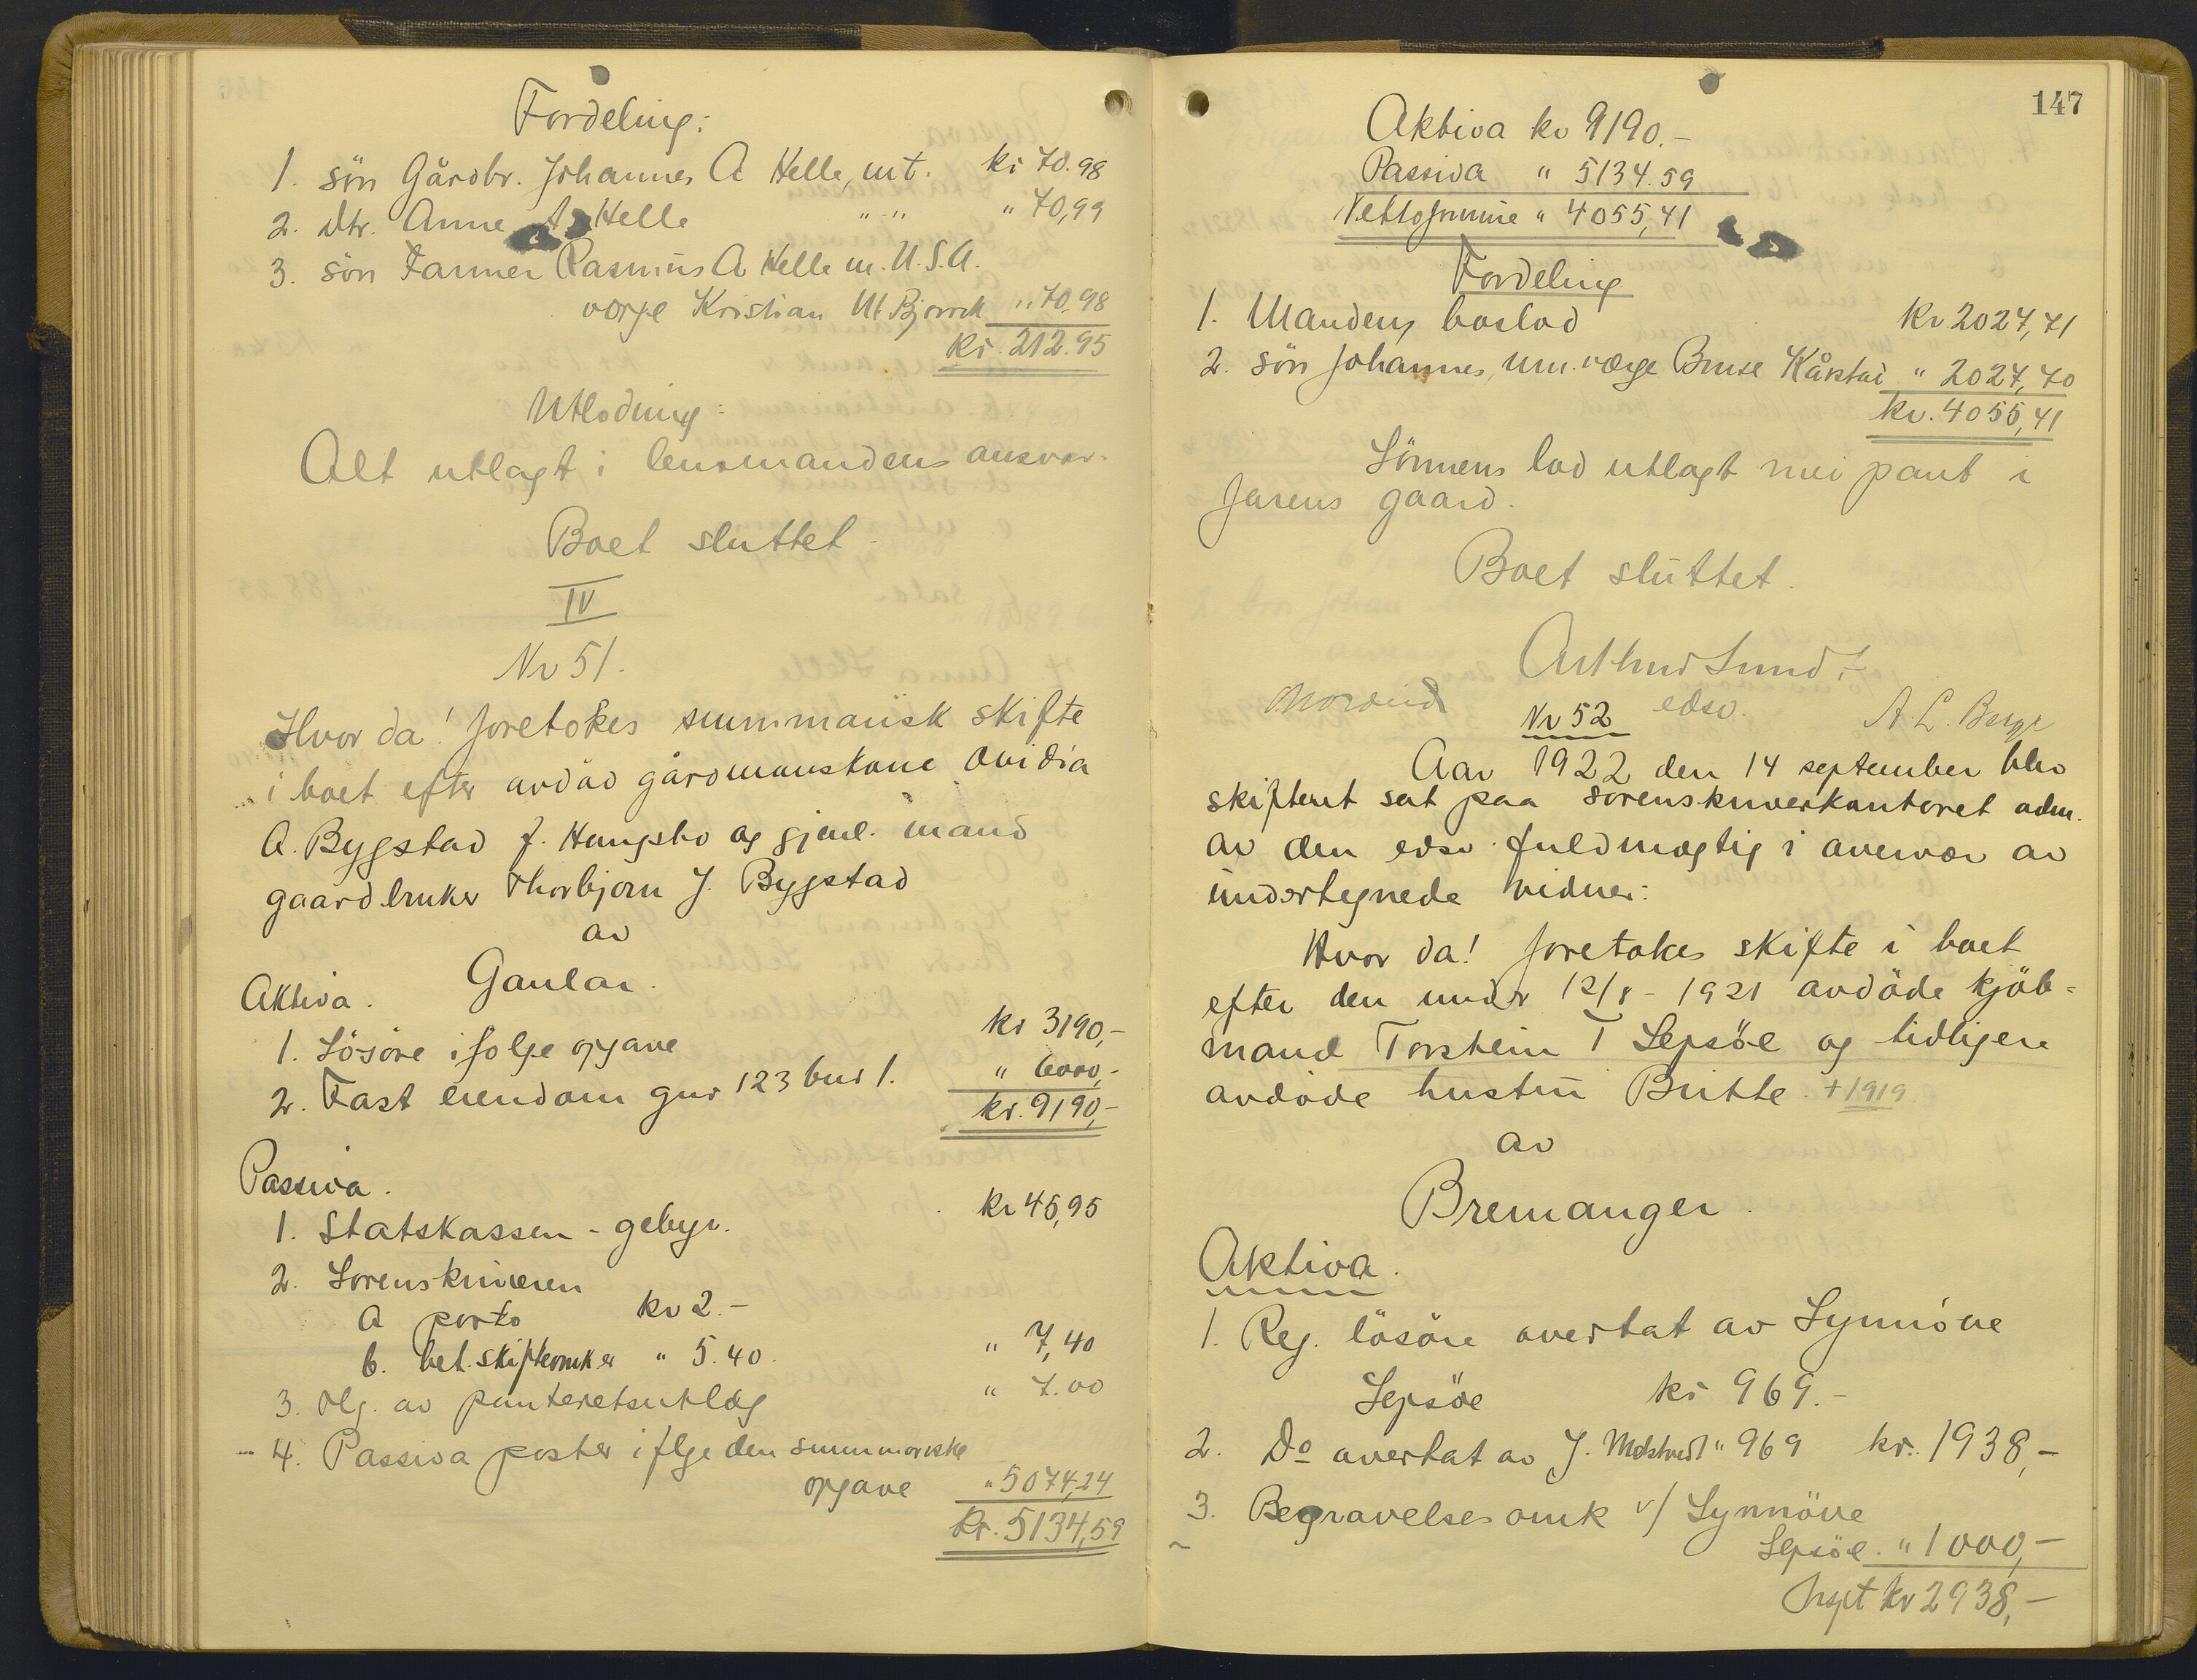 Fordeling:
1. sön Gårdbr. Johannes A Helle, mt. kr 70.98
2. dtr. Anne A Helle " " " 70,99
3. sön Farmer Rasmus A Helle m. U.S.A.
vorge Kristian M. " 70,98
kr. 212.95
Utlodning:
Alt utlagt i lensmandens ansvar.
Boet sluttet -
IV
Nr 51.
Hvor da! foretokes summarisk skifte
i boet efter avdöd gårdmanskone Ovidia
A. Bygstad f. og gjenl. mand
gaardbruker Thorbjorn J. Bygstad
av
Gaular.
Aktiva.
1. Lösöre ifolge opgave kr 3190,-
2. Fast eiendom gnr 123 bnr 1. " 6000,-
kr. 9190,-
Passiva.
1. Statskassen - gebyr. kr 45,95
2. Sorenskriveren
a porto kr 2.-
b. bet. skifteomk er " 5.40. " 7,40
3. tlg. av panteretsutlæg " 7.00
4. Passiva poster iflge den summariske
opgave " 5074,24
kr. 5134,59
147
Aktiva kr 9190.-
Passiva " 5134.59
Nettoformue " 4055,41
Fordeling
1. Mandens boslod kr. 2027,71
2. sön Johannes, um. værge Kårstad " 2027,70
kr. 4055,41
Sönnens lod utlagt med pant i
farens gaard.
Boet sluttet.
Arthur Lund f.
edsv.
Nr 52
A. L. Berge
Aar 1922 den 14 september blev
skifteret sat paa sorenskriverkontoret adm.
av den edsv. fuldmægtig i overvær av
undertegnede vidner:
Hvor da! foretokes skifte i boet
efter den under 12/8 - 1921 avdöde kjöb-
mand Torstein T Lepsöe og tidligere
avdöde hustru Britte. + 1919
av
Bremanger.
Aktiva.
1. Reg. lösöre overtat av Synnöve
Lepsöe kr 969.-
2. Do overtat av J. " 969 kr. 1938,-
3. Begravelses omk v/ Synnöve
Lepsöe. " 1000,-
Aspt kr 2938,-